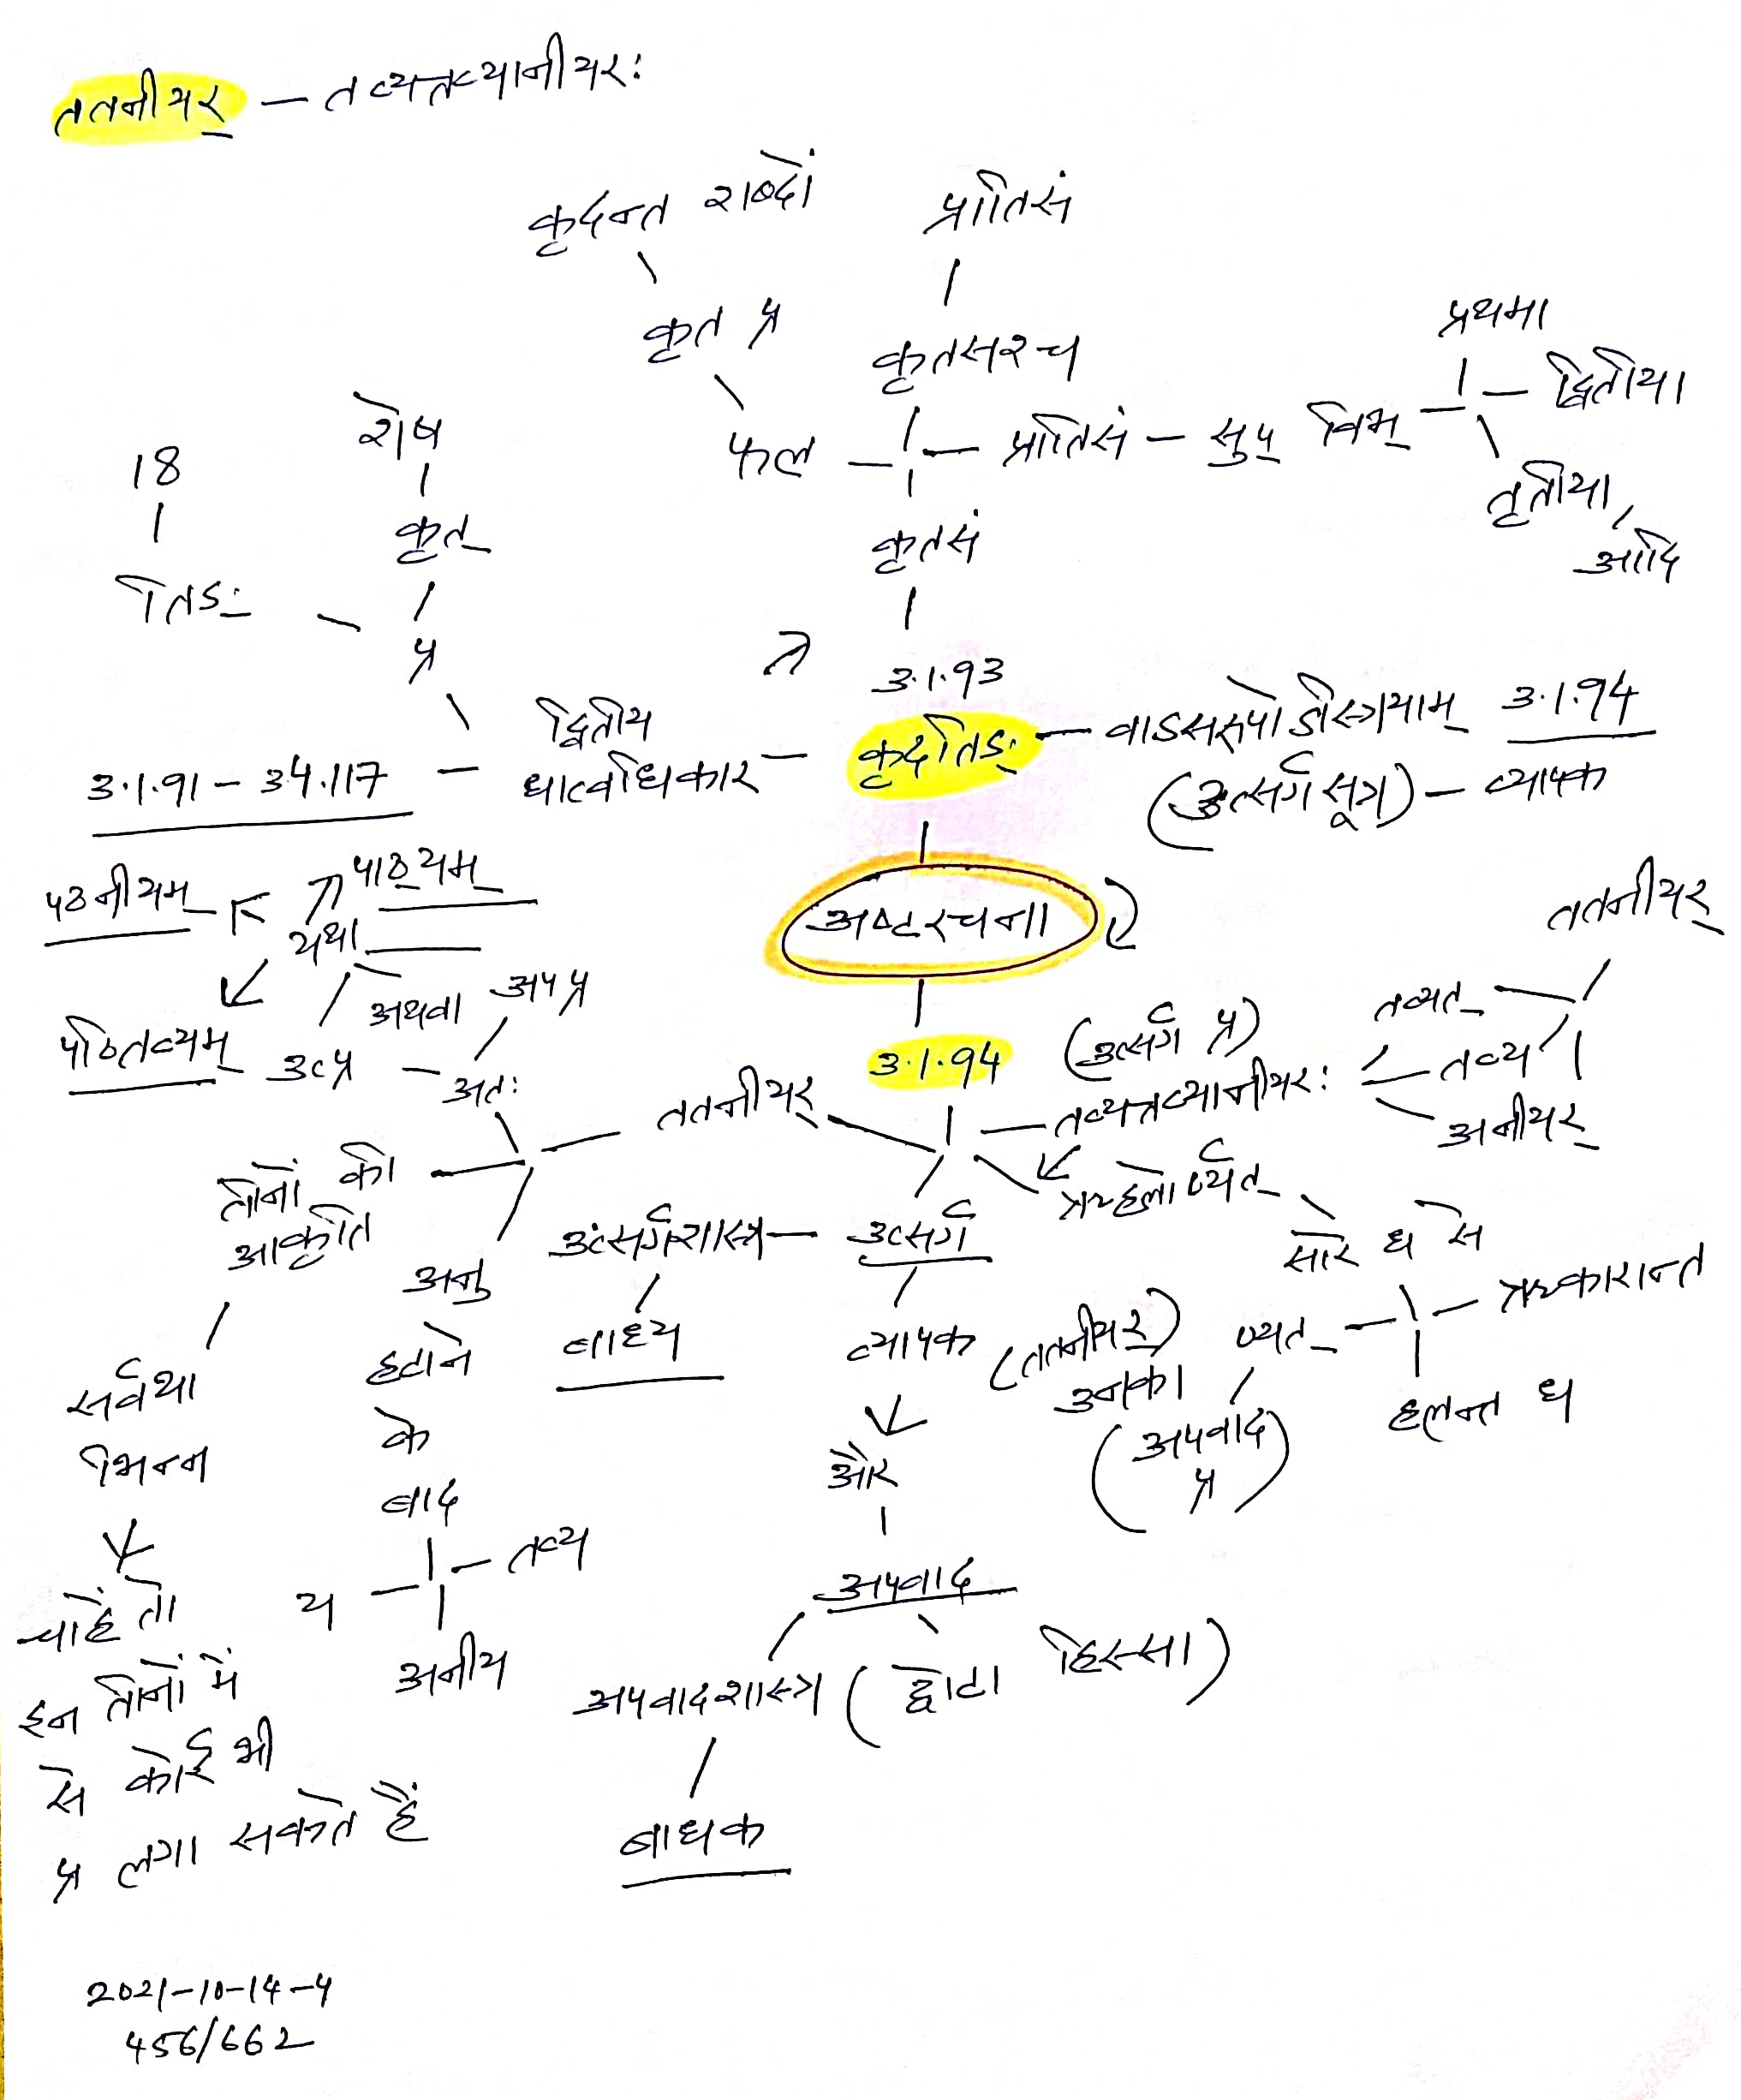 ततनीयर् — तव्यत्तव्यानीयरः
कृदन्त शब्दों
प्रातिसं
कृत प्र
कृतसश्च
प्रथमा
द्वितीया
शेष
फल — प्रातिसं — सुप् विभ्
18
तृतीया,
कृत्
कृतसं
आदि
तिङः
प्र
3.1.93
द्वितीय
कृदतिङः — वाऽसरूपोऽस्त्रियाम् 3.1.94
3.1.91 – 3.4.117 — धात्वधिकार
(उत्सर्ग सूत्र) — व्यापक
पाठ्यम्
पठनीयम्
यथा
अष्टरचना
ततनीयर्
अथवा
अप प्र
पठितव्यम्
उत्प्र — अतः
3.1.94
(उत्सर्ग प्र)
तव्यत्
तव्य
ततनीयर्
तव्यत्तव्यानीयरः
अनीयर्
तीनों की
आकृति
ऋहलोर्ण्यत्
अनु
उत्सर्गशास्त्र — उत्सर्ग
सारे ध से
ऋकारान्त
सर्वथा
हटाने
बाध्य
व्यापक
(ततनीयर)
उनका
ण्यत्
हलन्त ध
भिन्न
के
और
(अपवाद
प्र)
बाद
तव्य
अपवाद
चाहे तो
य
इन तीनों में
अनीय
अपवादशास्त्र (छोटा हिस्सा)
से कोई भी
प्र लगा सकते हैं
बाधक
2021-10-14-4
456/662